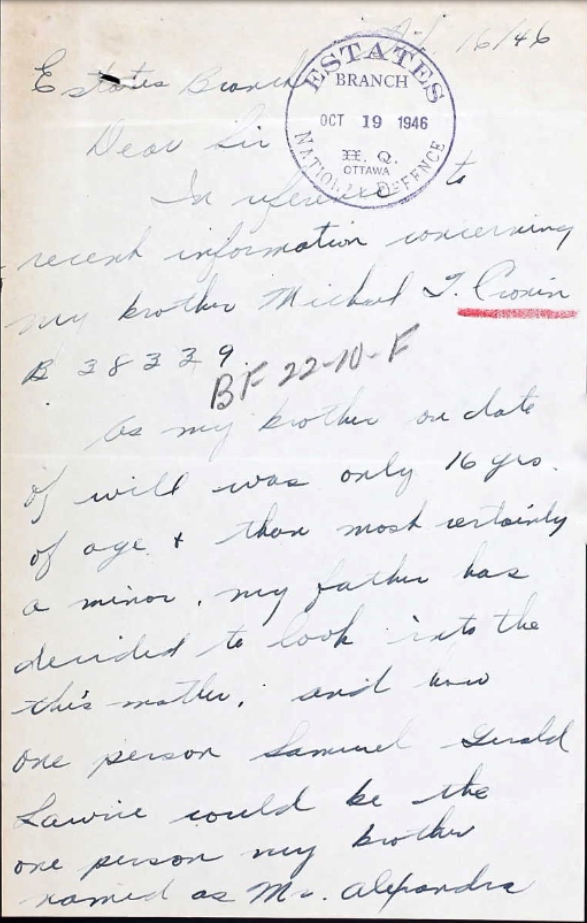 Oct. 16/46
Estates Branch
ESTATES
BRANCH
OCT 19 1946
H. Q.
OTTAWA
NATIONAL DEFENCE
Dear Sir
In reference to
recent information concerning
my brother Michael T. Cronin
B 38339.
BF 22-10-F
As my brother on date
of will was only 16 yrs.
of age & than most certainly
a minor. my father has
decided to look into the
this matter. and how
one person Samuel Gerald
Lawrie could be the
one person my brother
named as Mr. Alexandra